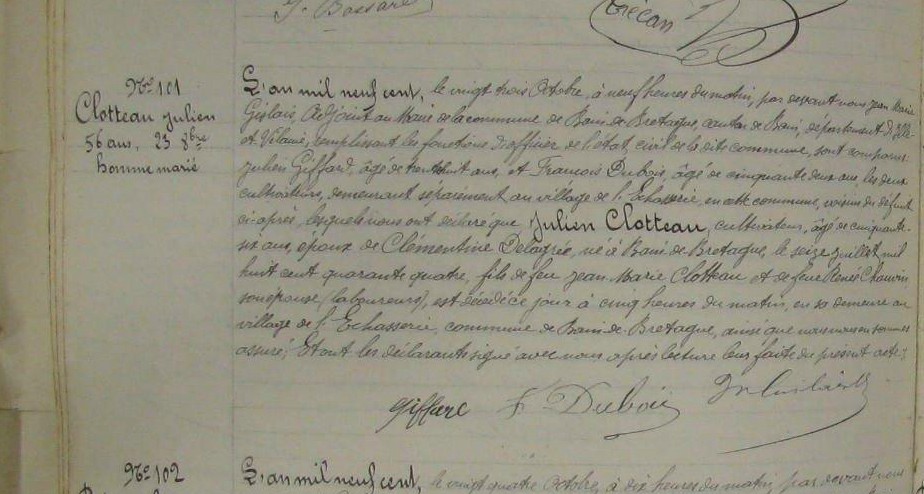 J. Bossard
Trécan
No 101
Clotteau Julien
56 ans, 23 8bre
homme marié
L'an mil neuf cent, le vingt trois Octobre, à neuf heures du matin, par devant nous Jean Marie
Gislais, Adjoint au Maire de la commune de Bain de Bretagne, canton de Bain, département d'Ille
et Vilaine, remplissant les fonctions d'officier de l'état civil de la dite commune, sont comparus
Julien Giffard, âgé de trente huit ans, et François Dubois, âgé de cinquante deux ans, les deux
cultivateurs, demeurant séparément au village de l'Echasserie, en cette commune, voisins du défunt
ci-après, lesquels nous ont déclaré que Julien Clotteau, cultivateur, âgé de cinquante-
six ans, époux de Clémentine Delagrée, né à Bain de Bretagne, le seize juillet mil
huit cent quarante quatre, fils de feu Jean Marie Clotteau et de feue Renée Chauvin
son épouse (laboureurs), est décédé ce jour à cinq heures du matin, en sa demeure au
village de l'Echasserie, commune de Bain-de-Bretagne, ainsi que nous nous en sommes
assuré; Et ont les déclarants signé avec nous après lecture leur faite du présent acte.
Giffard F. Dubois
No 102
L'an mil neuf cent, le vingt quatre Octobre, à dix heures du matin, par devant nous